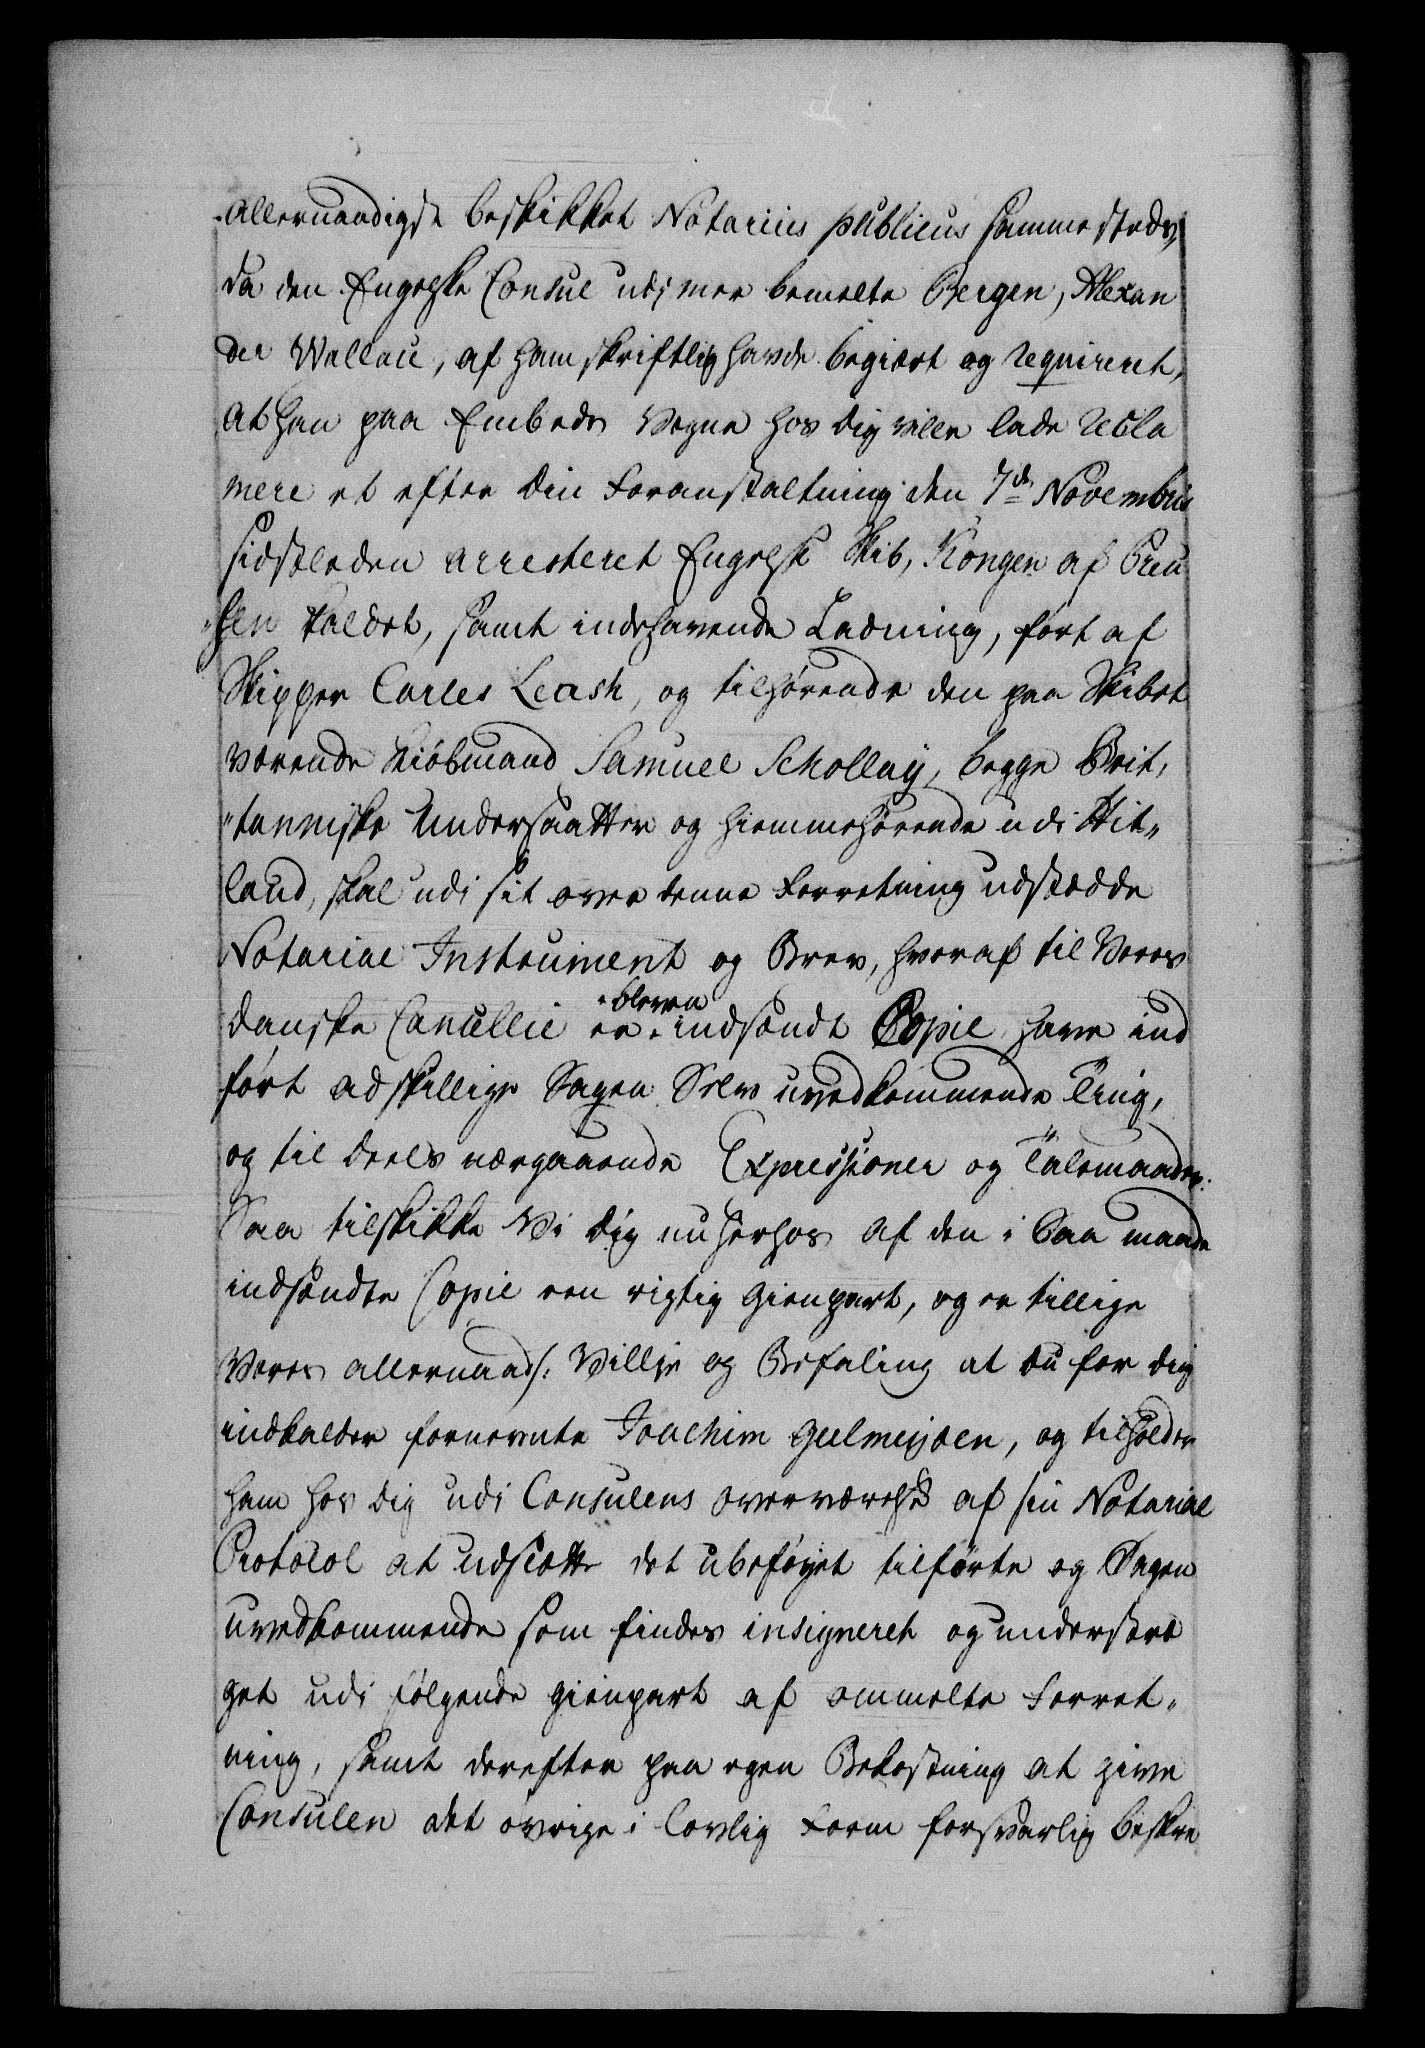 allernaadigst beskikket Notarius publicus sammesteds,
da den Engelske Consul udi mee bemelte Bergen, Alexan
der Wallau, af ham skriftlig havde begiært og reqvireret,
at han paa Embeds Vegne hos dig ville lade recla
mere et efter din Foranstaltning den 7de Novembris
sidstleden arresteret Engelsk Skib, Kongen af Preu
"sen kaldet, samt indehavende Ladning, ført af
Skipper Carles Leash, og tilhørende den paa Skibet
værende Kiøbmand Samuel Schollay, begge Brit,
"tanniske Undersaatter og hiemmehørende udi Hit,,
land, skal udi sit over denne Forretning udstædde
Notarial Instrument og Brev, hvoraf til Vores
danske Cancellie er blevne indsendt Copie have ind
ført adskillige Sagen Selv uvedkommende Ting,
og til deels nærgaaende Expressioner og Talemaader.
Saa tilskikke Vi dig nu herhos af den i saa maade
indsendte Copie een rigtig Gienpart, og er tillige
Vores allernaads: Villie og Befaling at du for dig
indkalder fornevnte Joachim Geelmeyden, og tilholder
ham hos dig udi Consulens overværelse af sin Notarial
Protocol at udslette det ubeføyet tilførte og Sagen
uvedkommende som findes insigneret og understre
get udi følgende gienpart af ommelte Forret,,
ning, samt derefter paa egen Bekostning at give
Consulen det øvrige i lovlig Form forsvarlig beskre